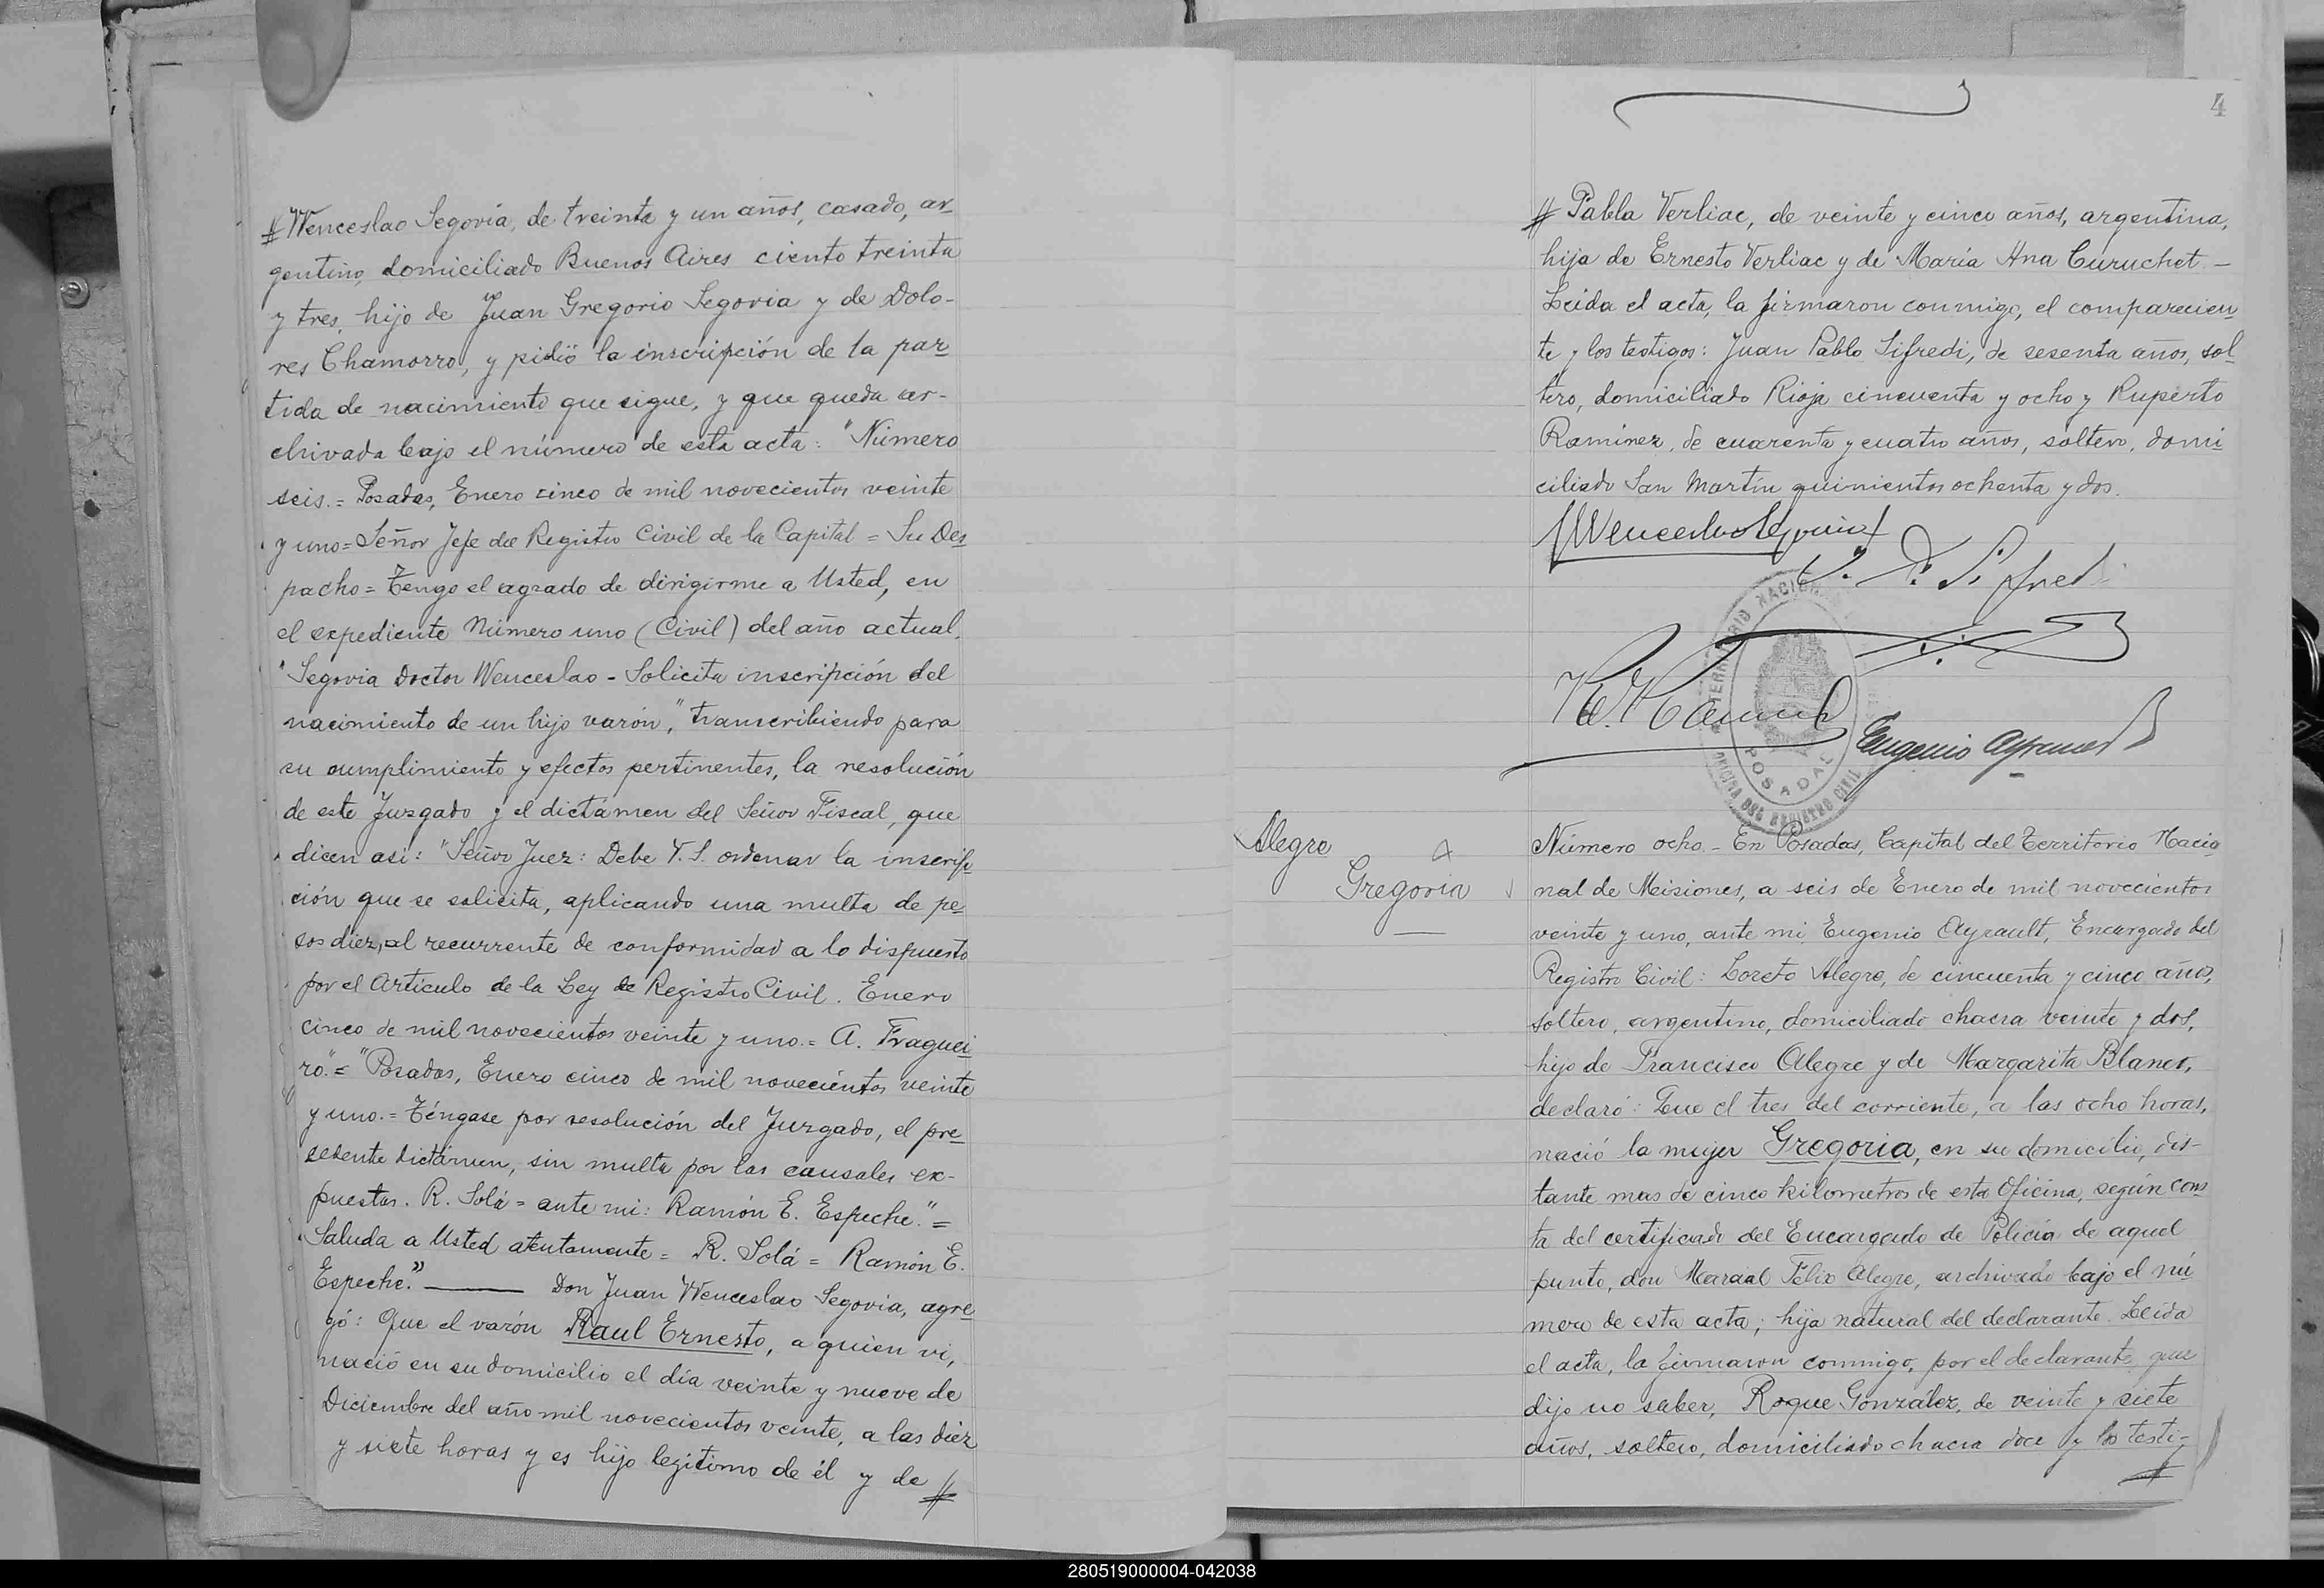 # Wenceslao Segovia, de treinta y un años, casado, ar-
gentino, domiciliado Buenos Aires ciento treinta
y tres, hijo de Juan Gregorio Segovia y de Dolo-
res Chamorro, y pidió la inscripción de la par-
tida de nacimiento que sigue, y que queda ar-
chivada bajo el número de esta acta: "Número
seis.= Posadas, Enero cinco de mil novecientos veinte
y uno= Señor Jefe del Registro Civil de la Capital = Su Des-
pacho = Tengo el agrado de dirigirme a Usted, en
el expediente Número uno (Civil) del año actual,
"Segovia Doctor Wenceslao - Solicita inscripción del
nacimiento de un hijo varón", transcribiendo para
su cumplimiento y efectos pertinentes, la resolución
de este Juzgado y el dictámen del Señor Fiscal, que
dicen asi: "Señor Juez: Debe V.S. ordenar la inscrip-
ción que se solicita, aplicando una multa de pe-
sos diez, al recurrente de conformidad a lo dispuesto
por el Artículo de la Ley de Registro Civil. Enero
cinco de mil novecientos veinte y uno.= A. Fraguei-
ro."= "Posadas, Enero cinco de mil novecientos veinte
y uno.= Téngase por resolución del Juzgado, el pre-
sedente dictámen, sin multa por las causales ex-
puestas. R. Solá = ante mi: Ramón E. Espeche."=
Saluda a Usted atentamente = R. Solá = Ramón E.
Espeche." ——— Don Juan Wenceslao Segovia, agre-
gó: Que el varón Raul Ernesto, a quien vi,
nació en su domicilio el día veinte y nueve de
Diciembre del año mil novecientos veinte, a las diez
y siete horas y es hijo legítimo de él y de #
4
# Pabla Verliac, de veinte y cinco años, argentina,
hija de Ernesto Verliac y de María Ana Curuchet -
Leida el acta, la firmaron conmigo, el comparecien-
te y los testigos: Juan Pablo Sifredi, de sesenta años, sol-
tero, domiciliado Rioja cincuenta y ocho y Ruperto
Ramirez, de cuarenta y cuatro años, soltero, domi-
ciliado San Martín quinientos ochenta y dos.
Wenceslao Segovia
J. P. Sifredi
Eugenio Ayrault
TERRITORIO NACIONAL
POSADAS
OFICINA DEL REGISTRO CIVIL
Alegre
Gregoria
Número ocho.- En Posadas, Capital del Territorio Nacio-
nal de Misiones, a seis de Enero de mil novecientos
veinte y uno, ante mi, Eugenio Ayrault, Encargado del
Registro Civil: Loreto Alegre, de cincuenta y cinco años,
soltero, argentino, domiciliado chacra veinte y dos,
hijo de Francisco Alegre y de Margarita Blanco,
declaró: Que el tres del corriente, a las ocho horas,
nació la mujer Gregoria, en su domicilio, dis-
tante mas de cinco kilometros de esta Oficina, según cons-
ta del certificado del Encargado de Policía de aquel
punto, don Marcial Felix Alegre, archivado bajo el nú-
mero de esta acta; hija natural del declarante. Leida
el acta, la firmaron conmigo, por el declarante que
dijo no saber, Roque González, de veinte y siete
años, soltero, domiciliado chacra doce y los testi-
#
280519000004-042038